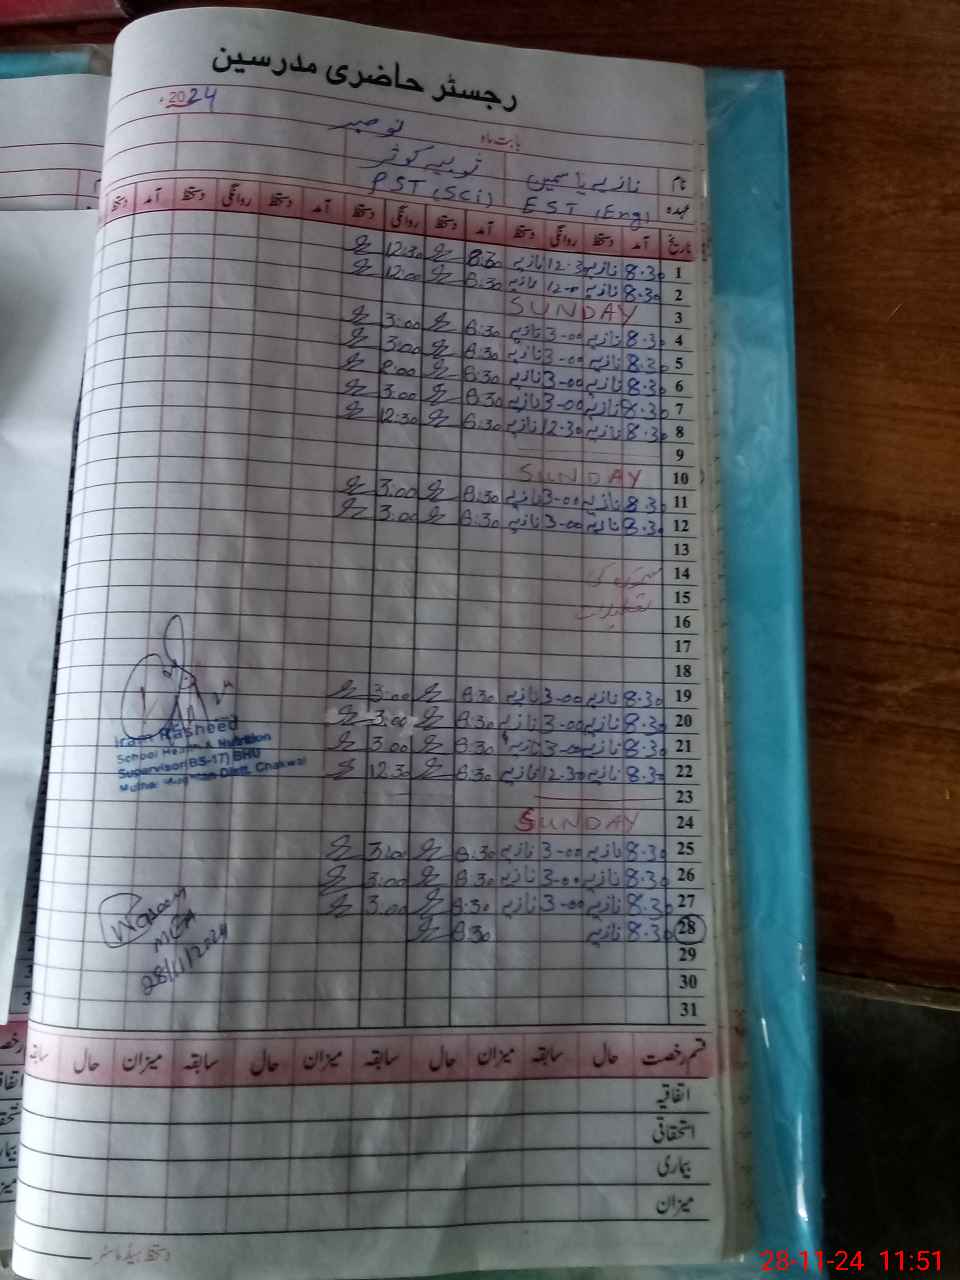 رجسٹر حاضری مدرسین
2024ء
بابت ماہ نومبر
نام نازیہ یاسمین ثوبیہ کوثر
عہدہ EST (Eng) PST (Sci)
تاریخ آمد دستخط روانگی دستخط آمد دستخط روانگی دستخط آمد دستخط روانگی دستخط آمد دستخط
1 8.30 نازیہ 12.30 نازیہ 8:30 12:30
2 8.30 نازیہ نازیہ 8:30 12:00
3 SUNDAY
4 8.30 نازیہ 3-00 نازیہ 8:30 3:00
5 8.30 نازیہ 3-00 نازیہ 8:30 3:00
6 8.30 نازیہ 3-00 نازیہ 8:30
7 8.30 نازیہ 3-00 نازیہ 8:30 3:00
8 8.30 نازیہ 12.30 نازیہ 8:30 12:30
9
10 SUNDAY
11 8.30 نازیہ 3-00 نازیہ 8:30 3:00
12 8.30 نازیہ 3-00 نازیہ 8:30 3:00
13
14
15
16
17
18
19 8.30 نازیہ 3-00 نازیہ 8:30 3:00
20 8.30 نازیہ 3-00 نازیہ 8:30 3:00
21 8.30 نازیہ 3-00 نازیہ 8:30 3:00
22 8.30 نازیہ 12.30 نازیہ 8:30 12:30
23
24 SUNDAY
25 8.30 نازیہ 3-00 نازیہ 8:30 3:00
26 8.30 نازیہ 3-00 نازیہ 8:30 3:00
27 8.30 نازیہ 3-00 نازیہ 8:30 3:00
28 8.30 نازیہ 8:30
29
30
31
Iram Rasheed
School Health & Nutrition
Supervisor(BS-17) BHU
Distt. Chakwal
MEA
28/11/2024
قسم رخصت حال سابقہ میزان حال سابقہ میزان حال سابقہ میزان حال سابقہ
اتفاقیہ
استحقاقی
بیماری
میزان
دستخط ہیڈ ماسٹر
28-11-24 11:51